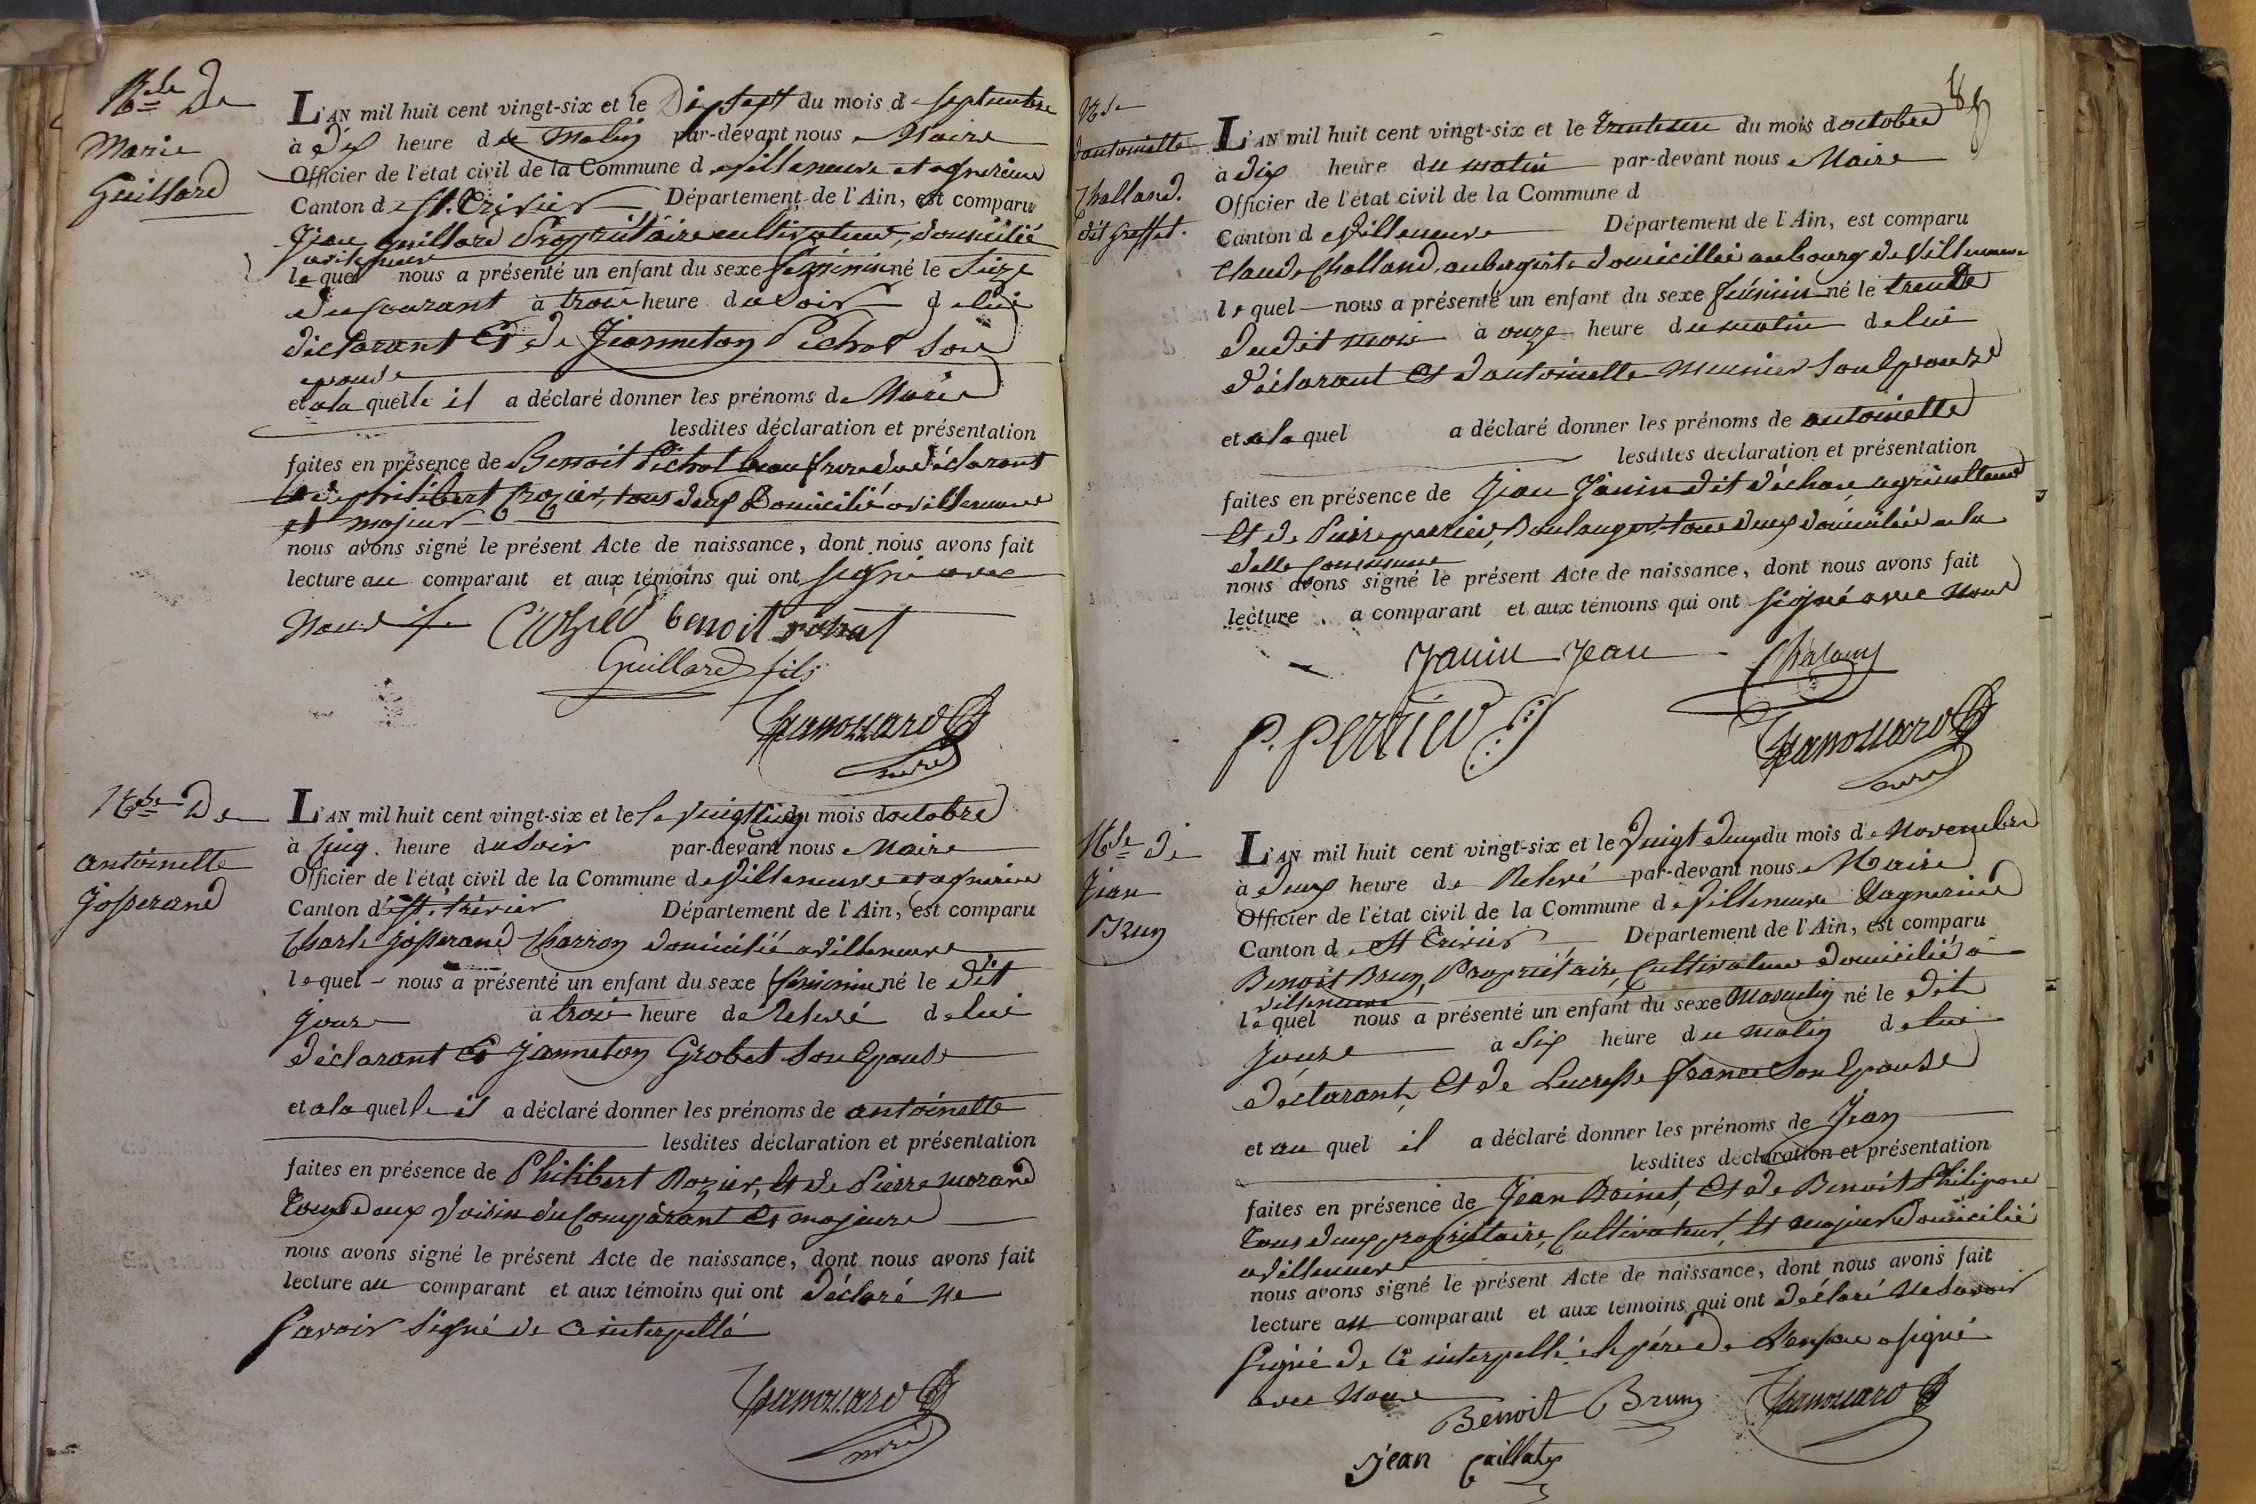 Nce de
Marie
Guillard
L'AN mil huit cent vingt-six et le Dix sept du mois de septembre
à dix heure du Matin par-dévant nous Maire
Officier de l'état civil de la Commune de villeneuve et agnereins
Canton de St. Trivier Département de l'Ain, est comparu
Jean guillard Propriétaire cultivateur, domicilié
a villeneuve
le quel nous a présenté un enfant du sexe féminin né le Seize
du courant à trois heure du soir de lui
déclarant Et de Jeanneton Pichat Son
epouse
et a la quelle il a déclaré donner les prénoms de Marie
lesdites déclaration et présentation
faites en présence de Benoit Pichat beau frere du déclarant
et de philibert Crozier, tous deux Domicilié a villeneuve
et majeur
nous avons signé le présent Acte de naissance, dont nous avons fait
lecture au comparant et aux témoins qui ont signé avec
Nous
Crozier benoit pichat
Guillard fils
Janouard
maire
Nce De
antoinette
Josserand
L'AN mil huit cent vingt-six et le le vingt cinq du mois doctobre
à cinq heure du Soir par-devant nous Maire
Officier de l'état civil de la Commune de villeneuve et agnereins
Canton de St. trivier Département de l'Ain, est comparu
Charle Josserand Charron domicilié a villeneuve
le quel nous a présenté un enfant du sexe féminin né le dit
jour à trois heure de Relevé de lui
déclarant Et Janneton Grobet Son Epouse
et a la quelle il a déclaré donner les prénoms de antoinette
lesdites déclaration et présentation
faites en présence de Philibert Rozier, Et de Pierre morand
tous deux Voisin du Comparant Et majeurs
nous avons signé le présent Acte de naissance, dont nous avons fait
lecture au comparant et aux témoins qui ont déclaré Ne
Savoir Signé de ce interpellé
Janouard
maire
88
Nce
d'antoinette
Challand.
dit Greffet.
L'AN mil huit cent vingt-six et le trente un du mois doctobre
à dix heure du matin par-devant nous Maire
Officier de l'état civil de la Commune d
Canton de villeneuve Département de l'Ain, est comparu
Claude Challand, aubergiste domicillié au bourg de Villeneuve
le quel nous a présenté un enfant du sexe féminin né le trente
du dit mois à onze heure du matin de lui
déclarant Et d'antoinette Meunier Son Epouse
et a la quel a déclaré donner les prénoms de antoinette
lesdites declaration et présentation
faites en présence de Jean Janin dit déchau, agriculteur
Et de Pierre perrier, Boulanger, tous deux domicilié a la
dette Commune
nous avons signé le présent Acte de naissance, dont nous avons fait
lecture a comparant et aux témoins qui ont signé avec Nous
Janin Jean Chaland
P. Perrier
Janouard
maire
Nce de
Jean
Brun
L'AN mil huit cent vingt-six et le Vingt deux du mois de Novembre
à deux heure de Relevé par-devant nous Maire
Officier de l'état civil de la Commune de Villeneuve Et agnereins
Canton de St Trivier Département de l'Ain, est comparu
Benoit Brun, Propriétaire, Cultivateur domicilié a
villeneuve
le quel nous a présenté un enfant du sexe Masculin né le dit
Jour à Six heure du matin de lui
déclarant, Et de Lucresse france Son Epouse
et au quel il a déclaré donner les prénoms de Jean
lesdites declaration et présentation
faites en présence de Jean Boinet, Et de Benoit Philipon
tous deux propriétaire, Cultivateur, Et majeur domicilié
a villeneuve
nous avons signé le présent Acte de naissance, dont nous avons fait
lecture au comparant et aux témoins qui ont déclaré Ne Savoir
Signé de ce interpellé le père de L'enfan a signé
avec Nous
Benoit Brun Janouard
Jean Caillat